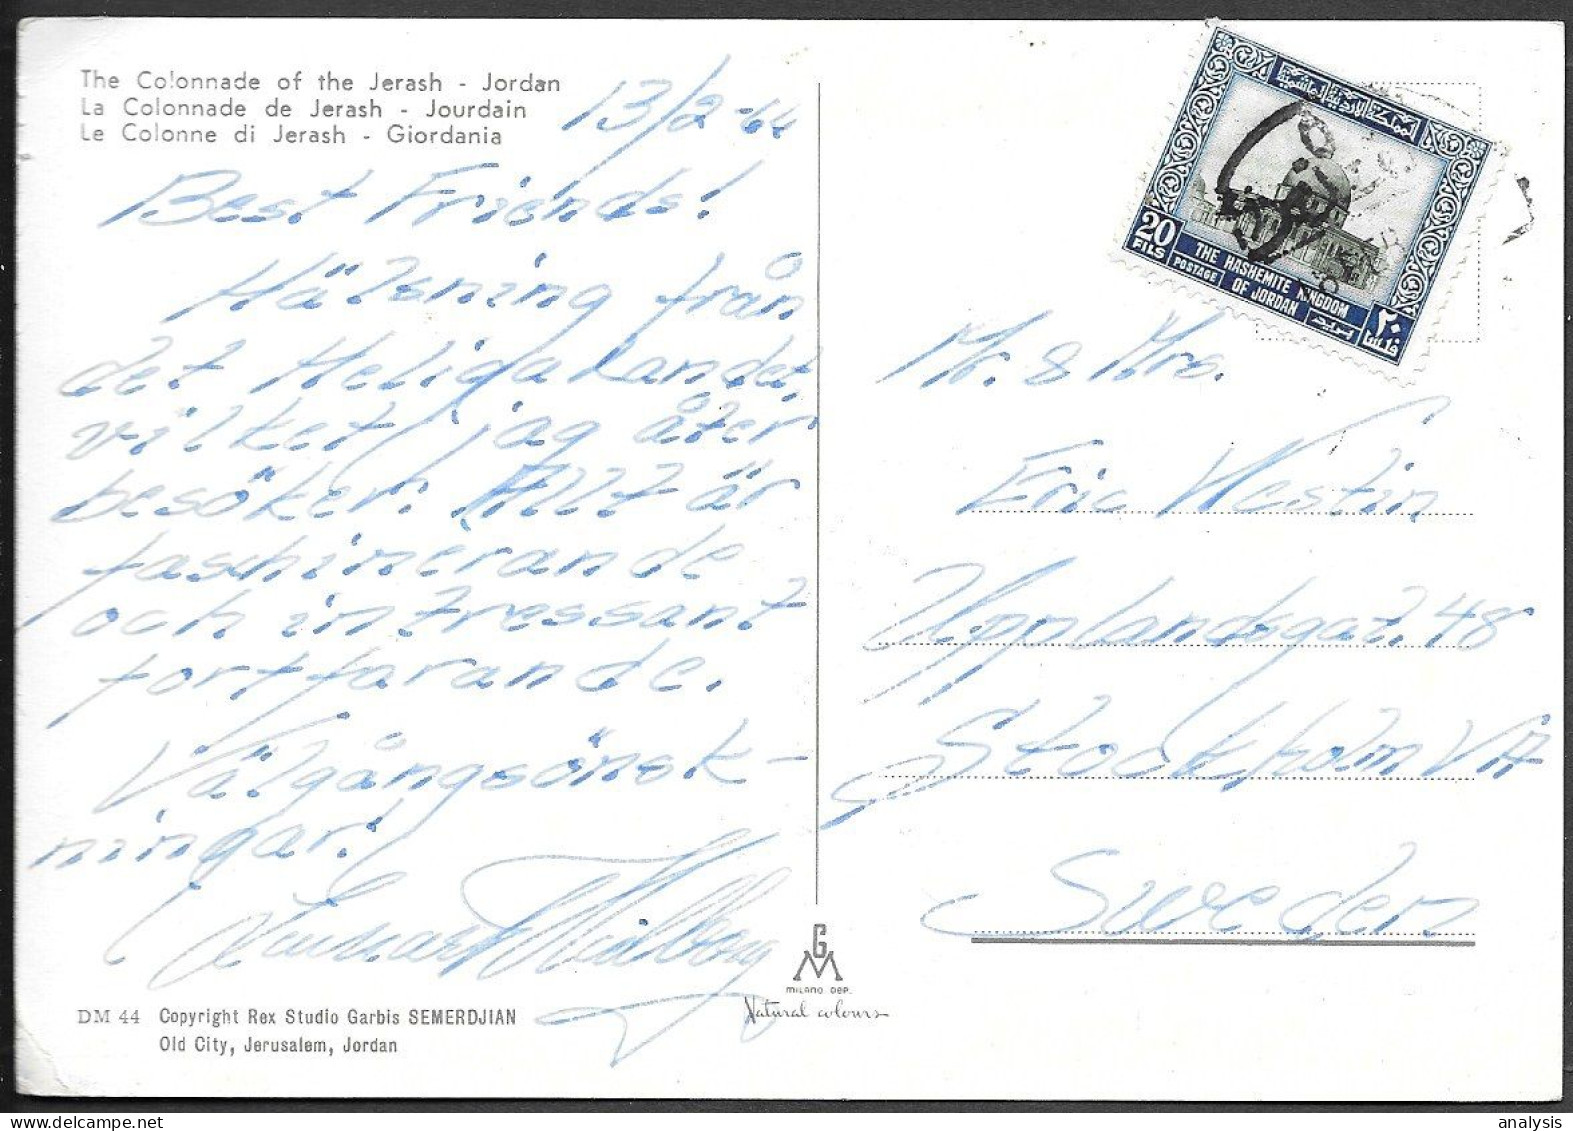 The Colonnade of the Jerash - Jordan
La Colonnade de Jerash - Jourdain
Le Colonne di Jerash - Giordania
13/2 -64
Best Friends!
Hälsning från
det Heliga Landet,
vilket jag åter
besöker. Allt är
fashinerande
och intressant
fortfarande.
Välgångsönsk-
ningar!
Lennart
DM 44 Copyright Rex Studio Garbis SEMERDJIAN
Old City, Jerusalem, Jordan
GM
MILANO DEP.
Natural colours
المملكة الاردنية الهاشمية
20 FILS
THE HASHEMITE KINGDOM
POSTAGE OF JORDAN
بريد
٢٠ فلسا
Mr. & Mrs.
Eric Westin
Upplandsgat. 48
Stockholm VA
Sweden
analysis